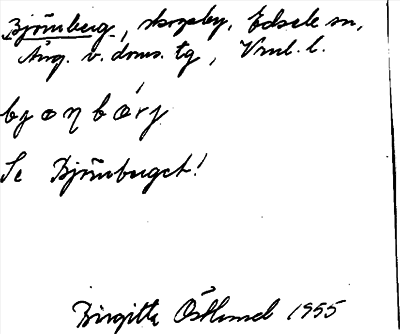 Björnberg, skogsby, Edsele sn,
Ång. v. doms. tg, Vnl. l.
bjọṇbárj
Se Björnberget!
Birgitta Östlund 1955